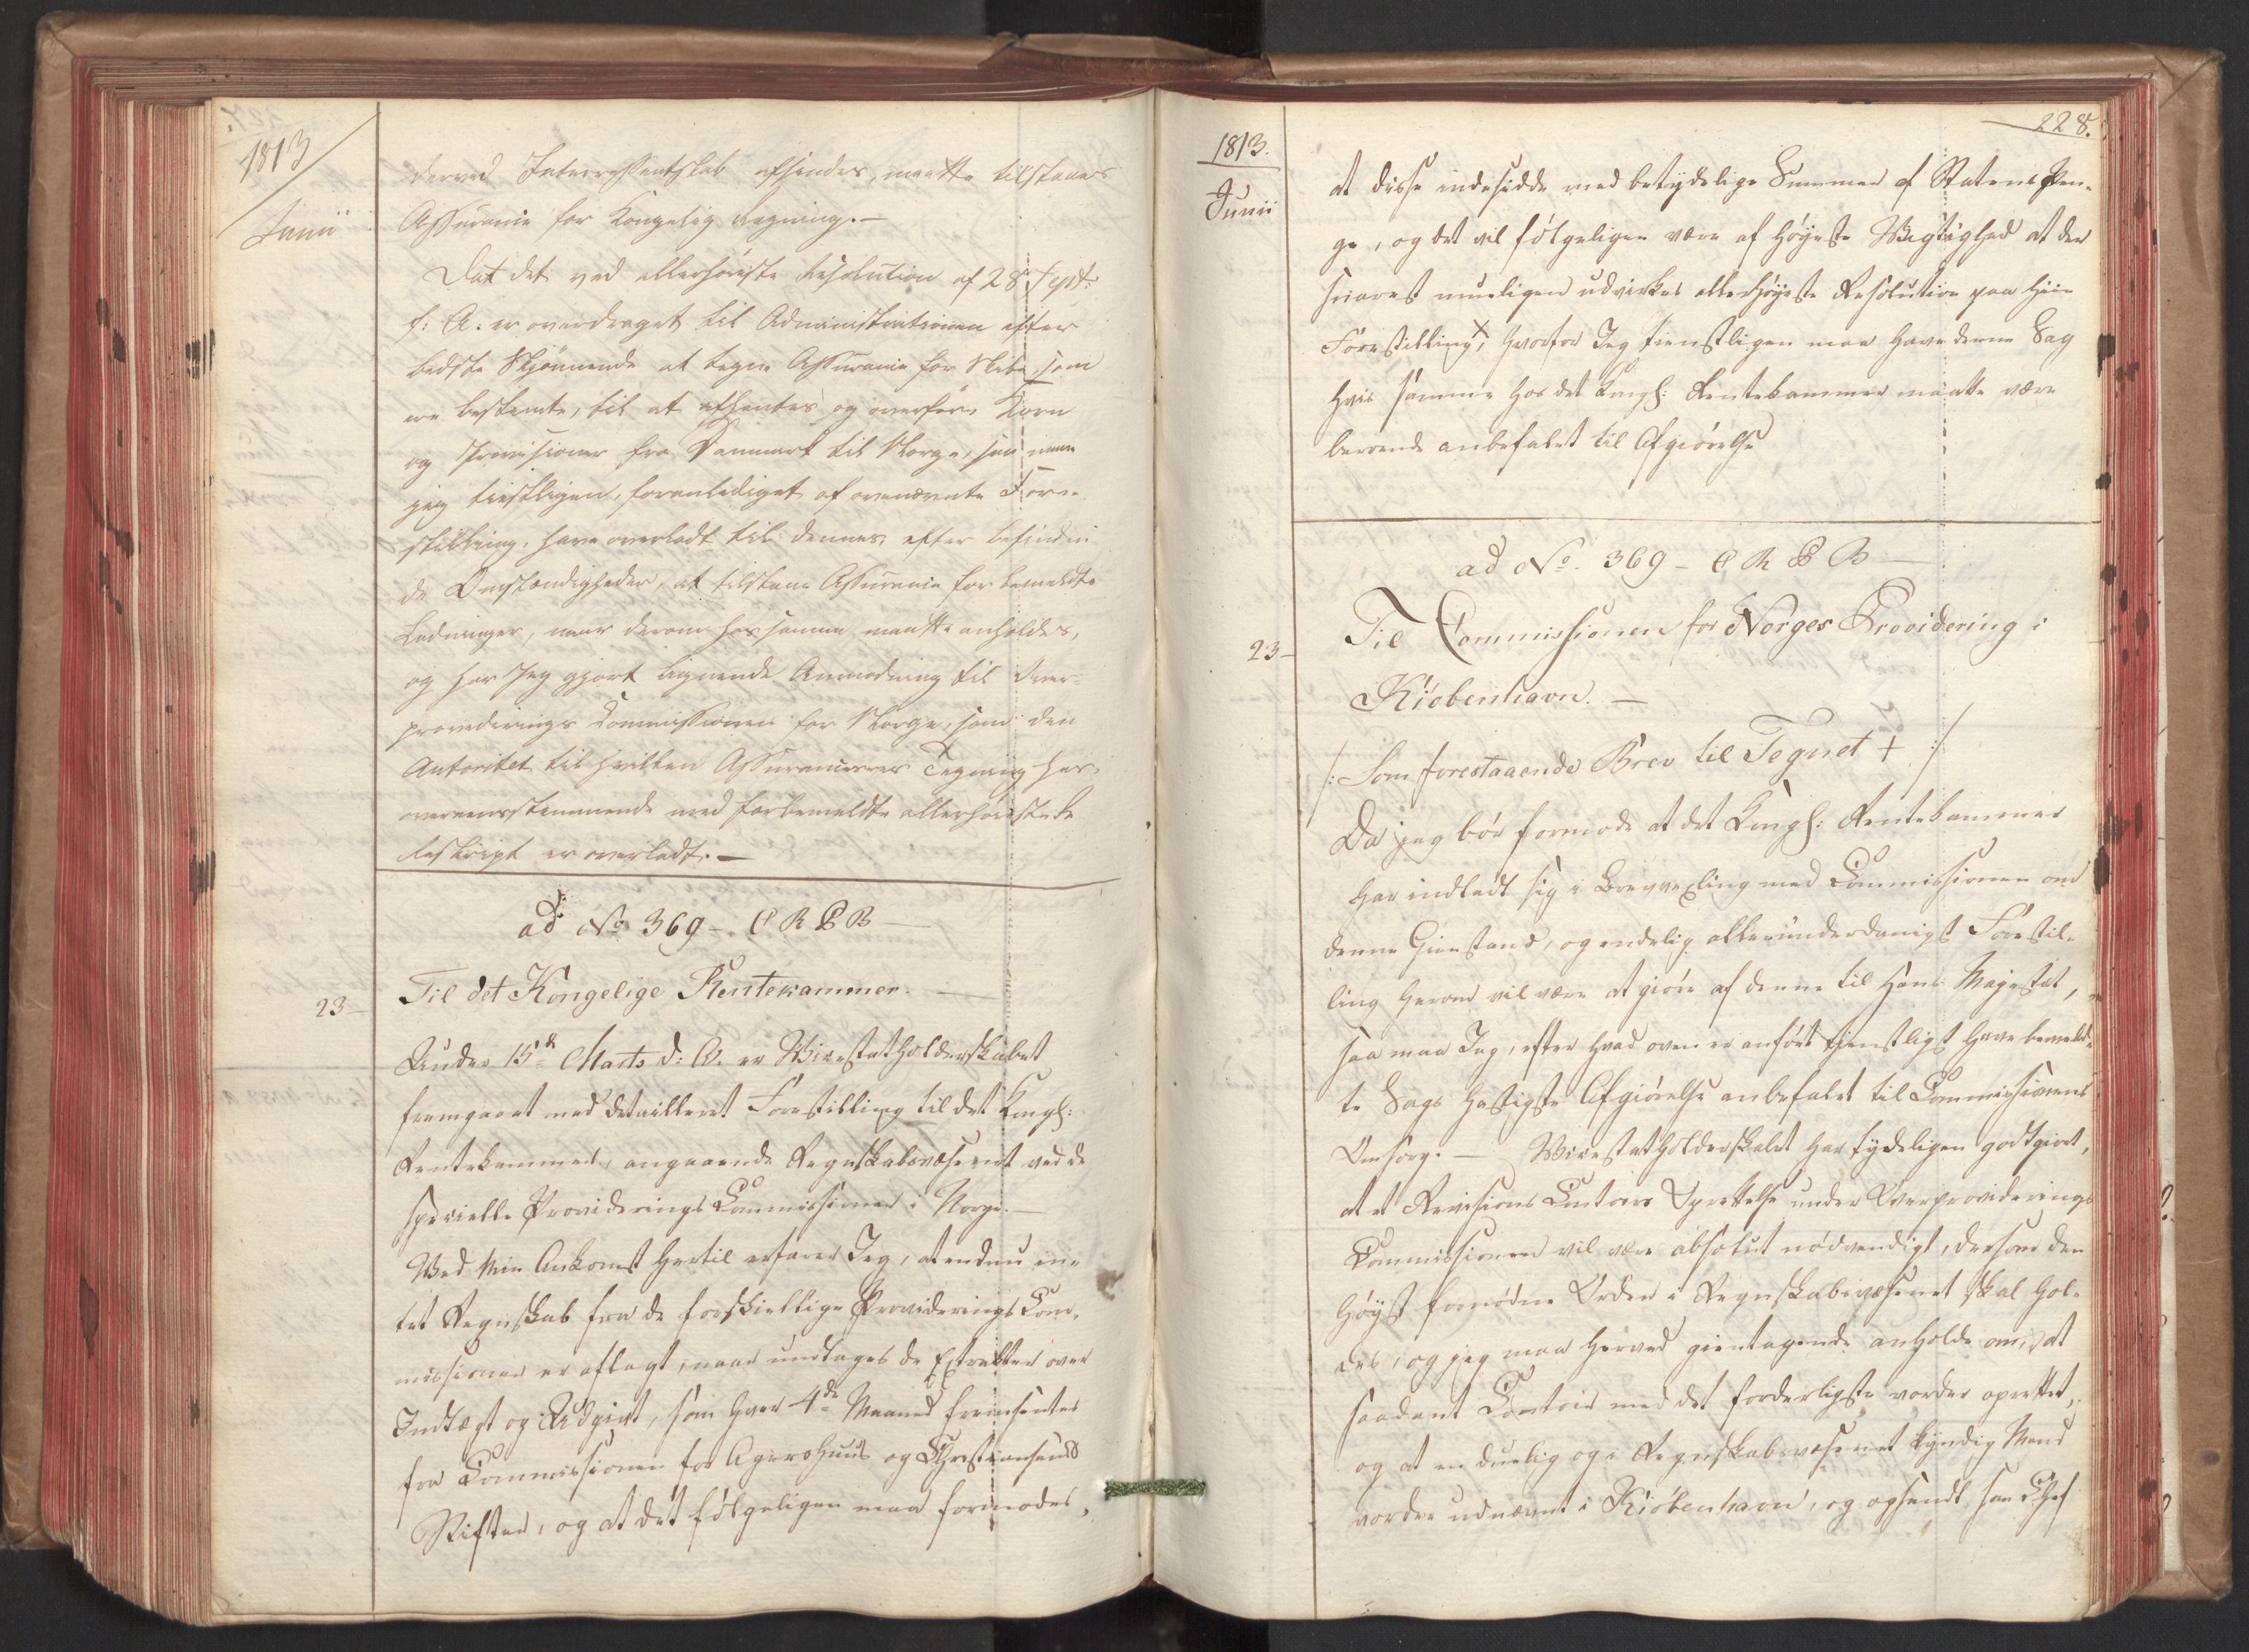 1813
Junii
derved Interessentskab afsendes, maatte tilstaaes
Assurance for Kongelig Regning.—
Da det ved allerhøieste Resolution af 28 Septr:
f: A: er overdraget til Administrationen efter
bedste Skjønnende at tegne Assurance for Skibe, som
ere bestemte, til at afhentes og overføre Korn
og Provisioner fra Danmark til Norge, saa maa
jeg tienstligen, foranlediget af ovennævnte Fore-
stilling, have overladt til dennes, efter befinden-
de Omstændigheder, at tilstaae Assurance for bemeldte
Ladninger, naar derom hos samme maatte anholdes,
og har Jeg gjort lignende Anmodning til Over-
providerings Commissionen for Norge, som den
Autoritet til hvilken Assurancernes Tegning her,
overeensstemmende med forbemeldte allerhøieste
Reskript er overladt.—
ad No 369 - C R P B —
23 —
Til det Kongelige Rentekammer. —
Under 15de Marts d: A. er Vicestatholderskabet
fremgaaet med detailleret Forestilling til det Kongl:
Rentekammer, angaaende Regnskabsvæsenet ved de
specielle Providerings Commissioner i Norge.—
Ved Min Ankomst hertil erfarer Jeg, at endnu in-
tet Regnskab fra de forskiellige Providerings Com-
missioner er aflagt, naar undtages de Extrakter over
Indtægt og Udgivt, som hver 4de Maaned fremsendes
fra Commissionen for Aggershuus og Christiansands
Stifter, og at det følgeligen maa formodes,
228.
1813.
Junii
at disse indesidde med betydelige Summer af Statens Pen-
ge, og det vil følgeligen være af høyeste Vigtighed at der
snarest mueligen udvirkes allerhøyeste Resolution paa hiin
Forestilling x, hvorfor Jeg tienstligen maa have denne Sag
hvis samme hos det Kongl: Rentekammer maatte være
beroende anbefalet til Afgiørelse
ad No. 369 - C R P B —
23 —
Til Commissionen for Norges Providering i
Kiøbenhavn. —
/: Som forestaaende Brev til Tegnet + :/
Da jeg bør formode at det Kongl: Rentekammer
har indladt sig i Brevvexling med Commissionen om
denne Gienstand, og endelig allerunderdanigst Forestil-
ling herom vil være at giøre af denne til Hans Majestæt,
saa maa Jeg, efter hvad oven er anført tienstligst have bemeld-
te Sags hastigste Afgiørelse anbefalet til Commissionens
Omsorg. — Vicestatholderskabet har tydeligen godtgiort,
at et Revisions Contoirs Oprettelse under Overproviderings
Commissionen vil være absolut nødvendigt, dersom den
høyst fornødne Orden i Regnskabsvæsenet skal hol-
des, og jeg maa herved gientagende anholde om, at
saadant Contoir med det forderligste vorder oprettet,
og at en duelig og i Regnskabsvæsenet kyndig Mand
vorder udnævnt i Kiøbenhavn, og opsendt som Chef